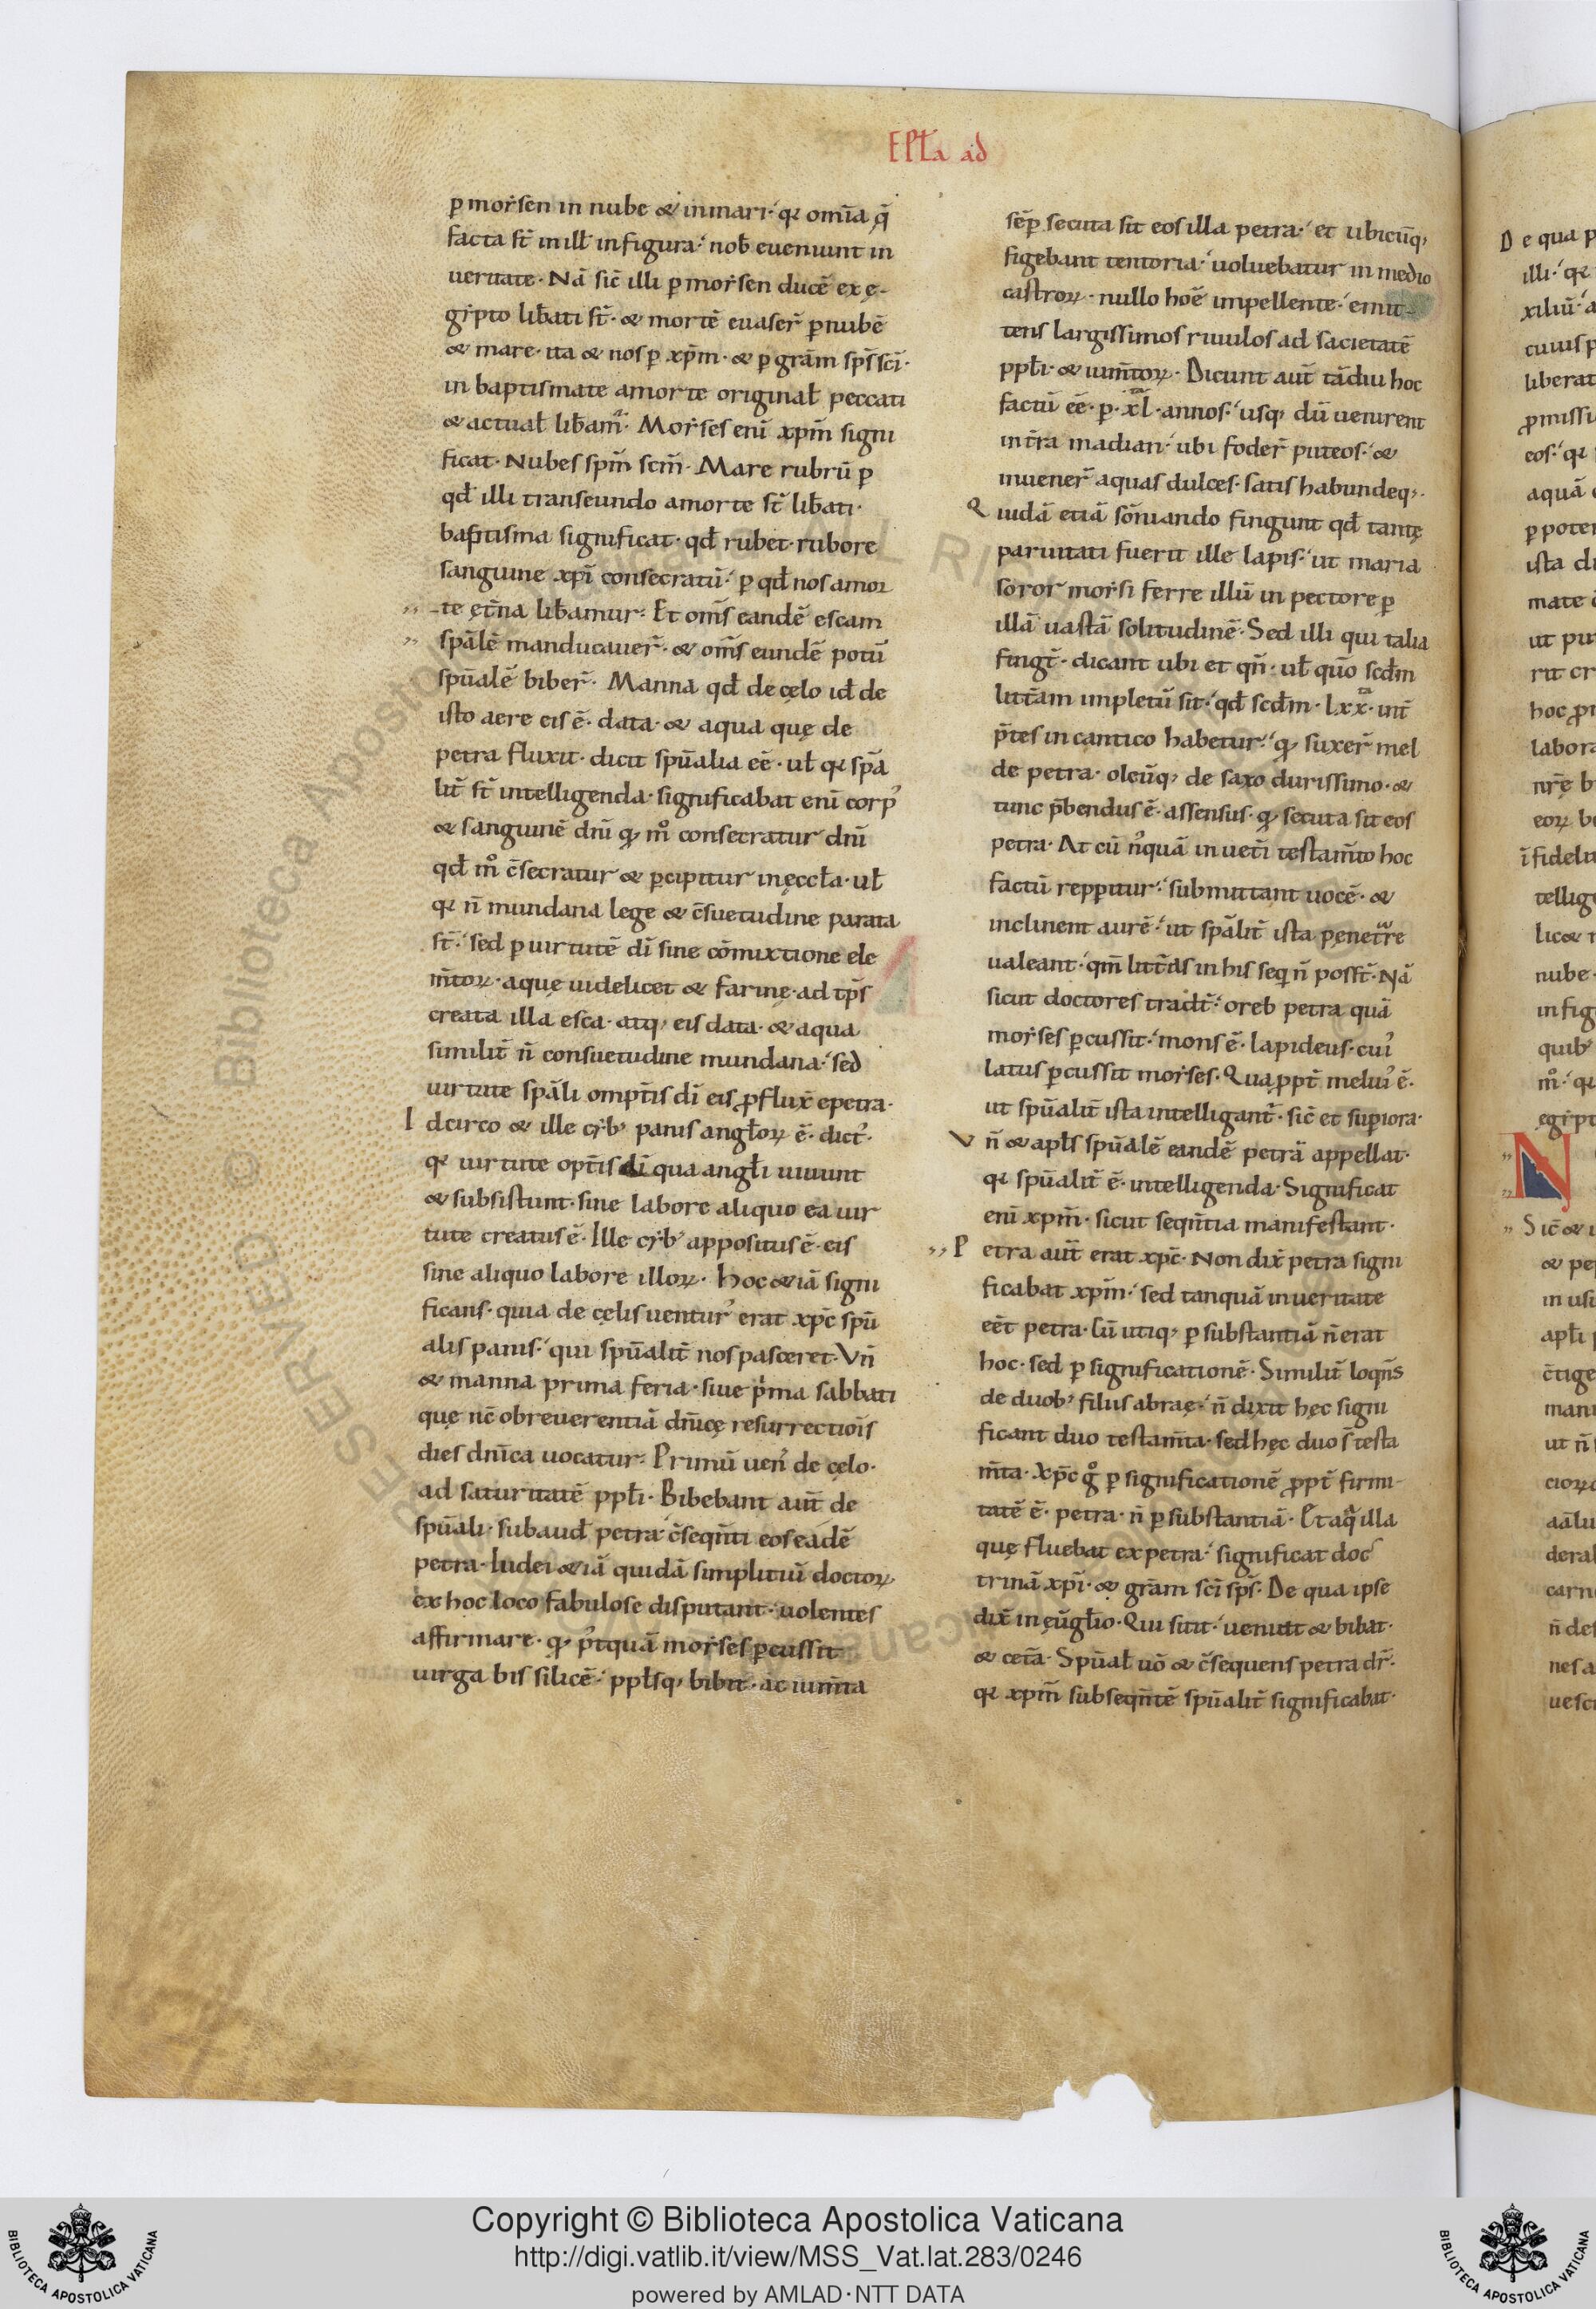 EPLa ad
p̲ moẏsen in nube & in mari· qꝛ om̄ia q̄
facta st̄ in ill̄ in figura· nob̄ eueniunt in
ueritate· Nā sic̄ illi ꝑ moẏsen ducē ex ę-
gẏpto lib̄ati st̄· & mortē euaser̄ ꝑ nubē
& mare· ita & nos ꝑ xp̄m· & ꝑ grām sp̄s sc̄i·
in baptismate a morte original̄ peccati
& actual̄ lib̄am᷑· Moẏses eni xpm̄ signi
ficat· Nubes spm̄ scm̄· Mare rubrū ꝑ
qd̄ illi transeundo a morte st̄ lib̄ati·
baptisma significat· qd̄ rubet· rubore
sanguine xpī consecratū· ꝑ qd̄ nos a mor
-te ęt̄na lib̄amur· Et om̄s eandē escam
spālē manducauer̄· & om̄s eundē potū
spūalē biber̄· Manna qd̄ de cęlo id̄ de
isto aere eis ē· data· & aqua quę de
petra fluxit· dicit spūalia eē· ul̄ qꝛ spā
lit̄ st̄ intelligenda· significabat enī corp᾽
& sanguinē dn̄i qꝫ m̊ consecratur dn̄i
qd̄ m̊ c̄secratur & ꝑcipitur in ęccl̄a· ul̄
qꝛ n̄ mundana lege & c̄suetudine parata
st̄· sed ꝑ uirtutē dī sine cōmixtione ele
m̄toꝝ· aquę uidelicet & farinę· ad tp̄s
creata illa esca· atq; eis data· & aqua
similit̄ n̄ consuetudine mundana· sed
uirtute spāli omp̄tis dī eis ꝓflux̄ e petra·
I dcirco & ille cẏb᾽ panis angl̄oꝝ ē· dict᾽·
qꝛ uirtute op̄tis dī qua angl̄i uiuunt
& subsistunt· sine labore aliquo ea uir
tute creatus ē· Ille cẏb᾽ appositus ē· eis
sine aliquo labore illoꝝ· hoc &iā signi
ficans· quia de cęlis uentur᾽ erat xpc̄ spū
alis panis· qui spūalit̄ nos pasceret· Vn̄
& manna prima feria· siue pͥma sabbati
quę nc̄ ob reuerentiā dn̄icę resurrectiōis
dies dn̄ica uocatur· Primū uen̄ de cęlo·
ad saturitatē ppl̄i· Bibebant aut̄ de
spūali· subaud̄ petra c̄seqn̄ti eos eadē
petra· Iudei &iā quidā simplitiū doctoꝝ
ex hoc loco fabulose disputant· uolentes
affirmare· qꝫ p᾽tquā moẏses ꝑcussit
uirga bis silicē· ppl̄sq; bibit· ac ium̄ta
sēꝑ secuta sit eos illa petra· et ubicūq;
figebant tentoria· uoluebatur in medio
castroꝝ· nullo hoē impellente· emit-
tens largissimos riuulos ad sacietatē
ppl̄i· & ium̄toꝝ· Dicunt aut̄ tādiu hoc
factū eē· ꝑ· xl· annos· usq; dū uenirent
in t̄ra madian· ubi foder̄ puteos· &
inuener̄ aquas dulces· satis habundeq;·
Q uidā etiā sōniando fingunt qd̄ tantę
paruitati fuerit ille lapis· ut maria
soror moẏsi ferre illū in pectore ꝑ
illā uastā solitudinē· Sed illi qui talia
fingt̄· dicant ubi et qn̄· ul̄ quō scdm̄
litt̄am impletū sit· qd̄ scdm̄· lxx· int̄
p̄tes in cantico habetur· qꝫ suxer̄ mel
de petra· oleūq; de saxo durissimo· &
tunc p̄bendus ē· assensus· qꝫ secuta sit eos
petra· At cū n᾽quā in uet̄i testam̄to hoc
factū repꝑitur· submittant uocē· &
inclinent aurē· ut spālit̄ ista penet̄re
ualeant· qm̄ litt̄as in his seq n̄ posst̄· Nā
sicut doctores tradt̄· oreb petra quā
moẏses ꝑcussit· mons ē· lapideus· cui᾽
latus ꝑcussit moẏses· Quaꝓpt̄ meliu᾽ ē·
ut spūalit̄ ista intelligant᷑· sic̄ et suꝑiora·
V n̄ & apl̄s spūalē eandē petrā appellat·
qꝛ spūalit̄ ē· intelligenda· Significat
enī xpm̄· sicut seqn̄tia manifestant·
P etra aut̄ erat xpc̄· Non dix̄ petra signi
ficabat xpm̄· sed tanquā in ueritate
eēt petra· Cū utiq; ꝑ substantiā n̄ erat
hoc· sed ꝑ significationē· Similit̄ loqn̄s
de duob᾽ filiis abraę· n̄ dixit hęc signi
ficant duo testam̄ta· sed hęc duo s̄ testa
m̄ta· Xpc̄ gͦ ꝑ significationē ꝓpt̄ firmi-
tatē ē· petra· n̄ ꝑ substantiā· Et aq̄ illa
quę fluebat ex petra· significat doc
trinā xpī· & grām sc̄i sp̄s· De qua ipse
dix̄ in eūgl̄io· Qui sitit· ueniat & bibat·
& cet̄a· Spūal̄ uō & c̄sequens petra dr̄·
qꝛ xpm̄ subseqn̄tē spūalit̄ significabat·
Copyright © Biblioteca Apostolica Vaticana
http://digi.vatlib.it/view/MSS_Vat.lat.283/0246
powered by AMLAD·NTT DATA
BIBLIOTECA APOSTOLICA VATICANA
BIBLIOTECA APOSTOLICA VATICANA